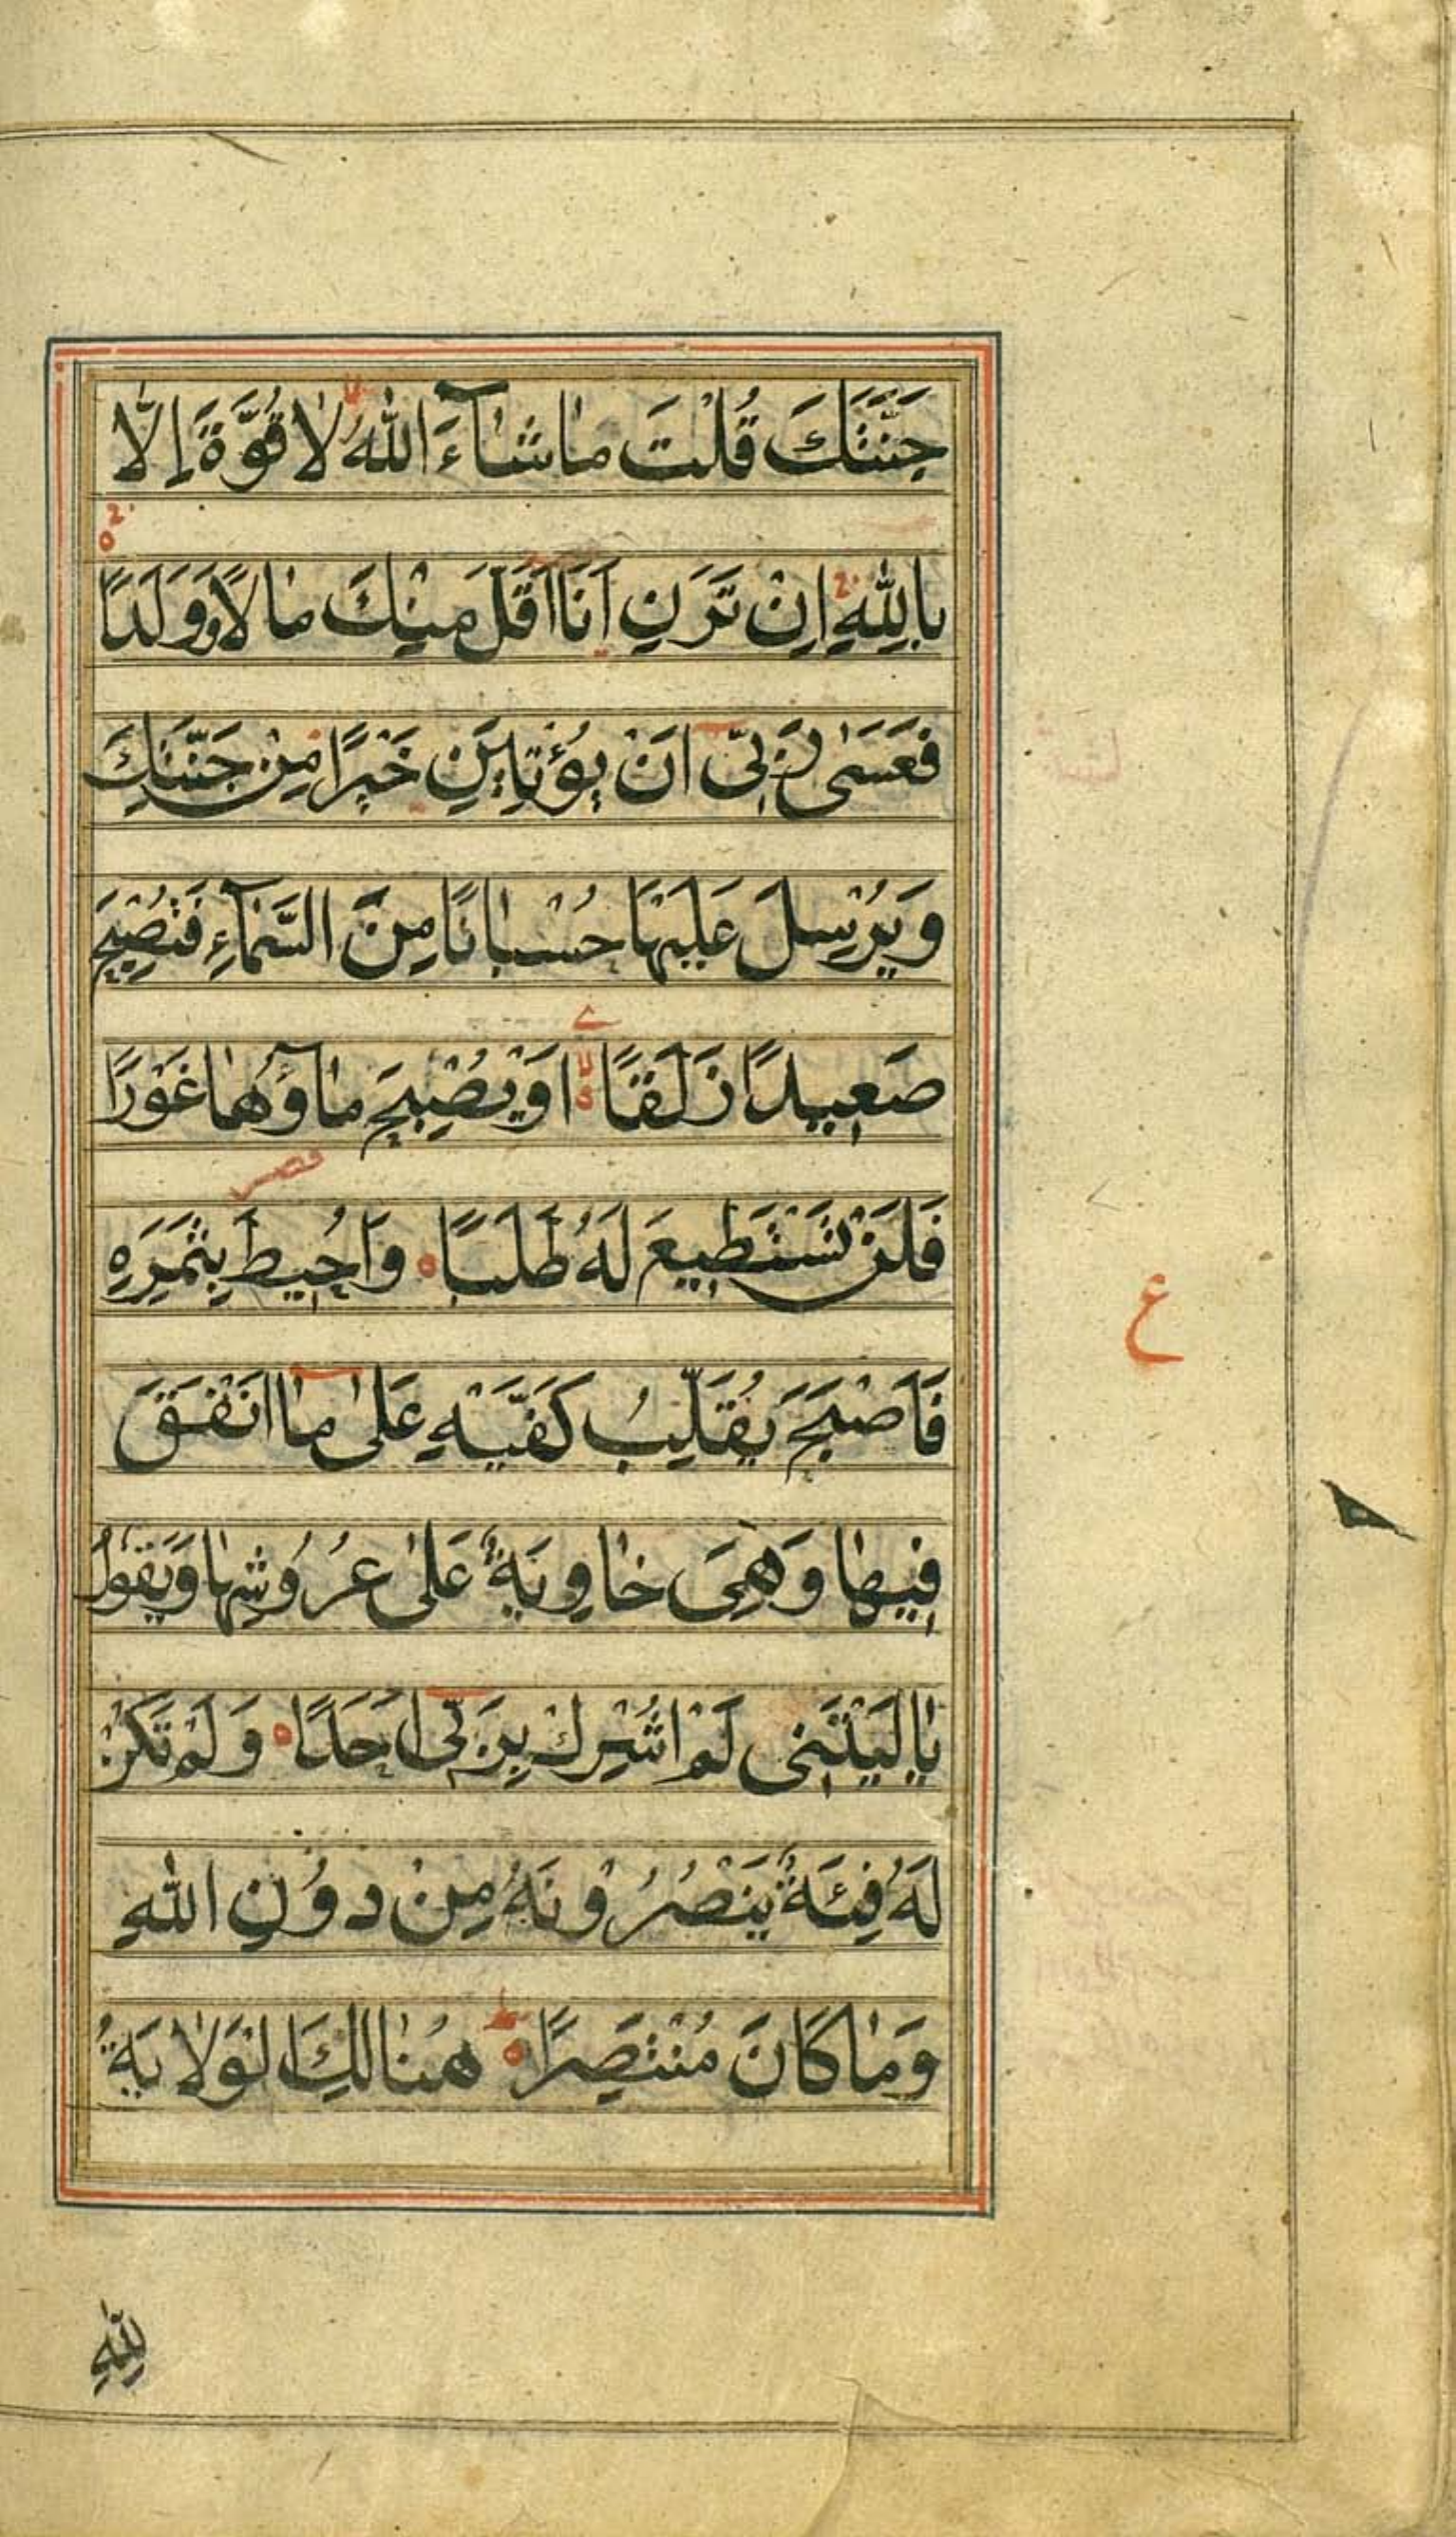 جَنَّتَكَ قُلْتَ مٰاشٰآءَ اللّٰهُ لٰا قُوَّةَ اِلّٰا
بِاللّٰهِ اِنْ تَرَنِ اَنَا اَقَلَّ مِنْكَ مٰالًا وَوَلَدًا
فَعَسٰى رَبّى اَنْ يُؤْتِيَنِ خَيْرًا مِنْ جَنَّتِكَ
وَيُرْسِلَ عَلَيْهٰا حُسْبٰانًا مِنَ السَّمٰآءِ فَتُصْبِحَ
صَعِيدًا زَلَقًا اَوْ يُصْبِحَ مٰآؤُهٰا غَوْرًا
فَلَنْ تَسْتَطِيعَ لَهُ طَلَبًا وَاُحِيطَ بِثَمَرِهِ
فَاَصْبَحَ يُقَلِّبُ كَفَّيْهِ عَلٰى مٰا اَنْفَقَ
فِيهٰا وَهِىَ خٰاوِيَةٌ عَلٰى عُرُوشِهٰا وَيَقُولُ
يٰا لَيْتَنِى لَمْ اُشْرِكْ بِرَبِّى اَحَدًا وَلَمْ تَكُنْ
لَهُ فِئَةٌ يَنْصُرُونَهُ مِنْ دُونِ اللّٰهِ
وَمٰا كَانَ مُنْتَصِرًا هُنٰالِكَ الْوَلٰايَةُ
ع
لِلّٰهِ